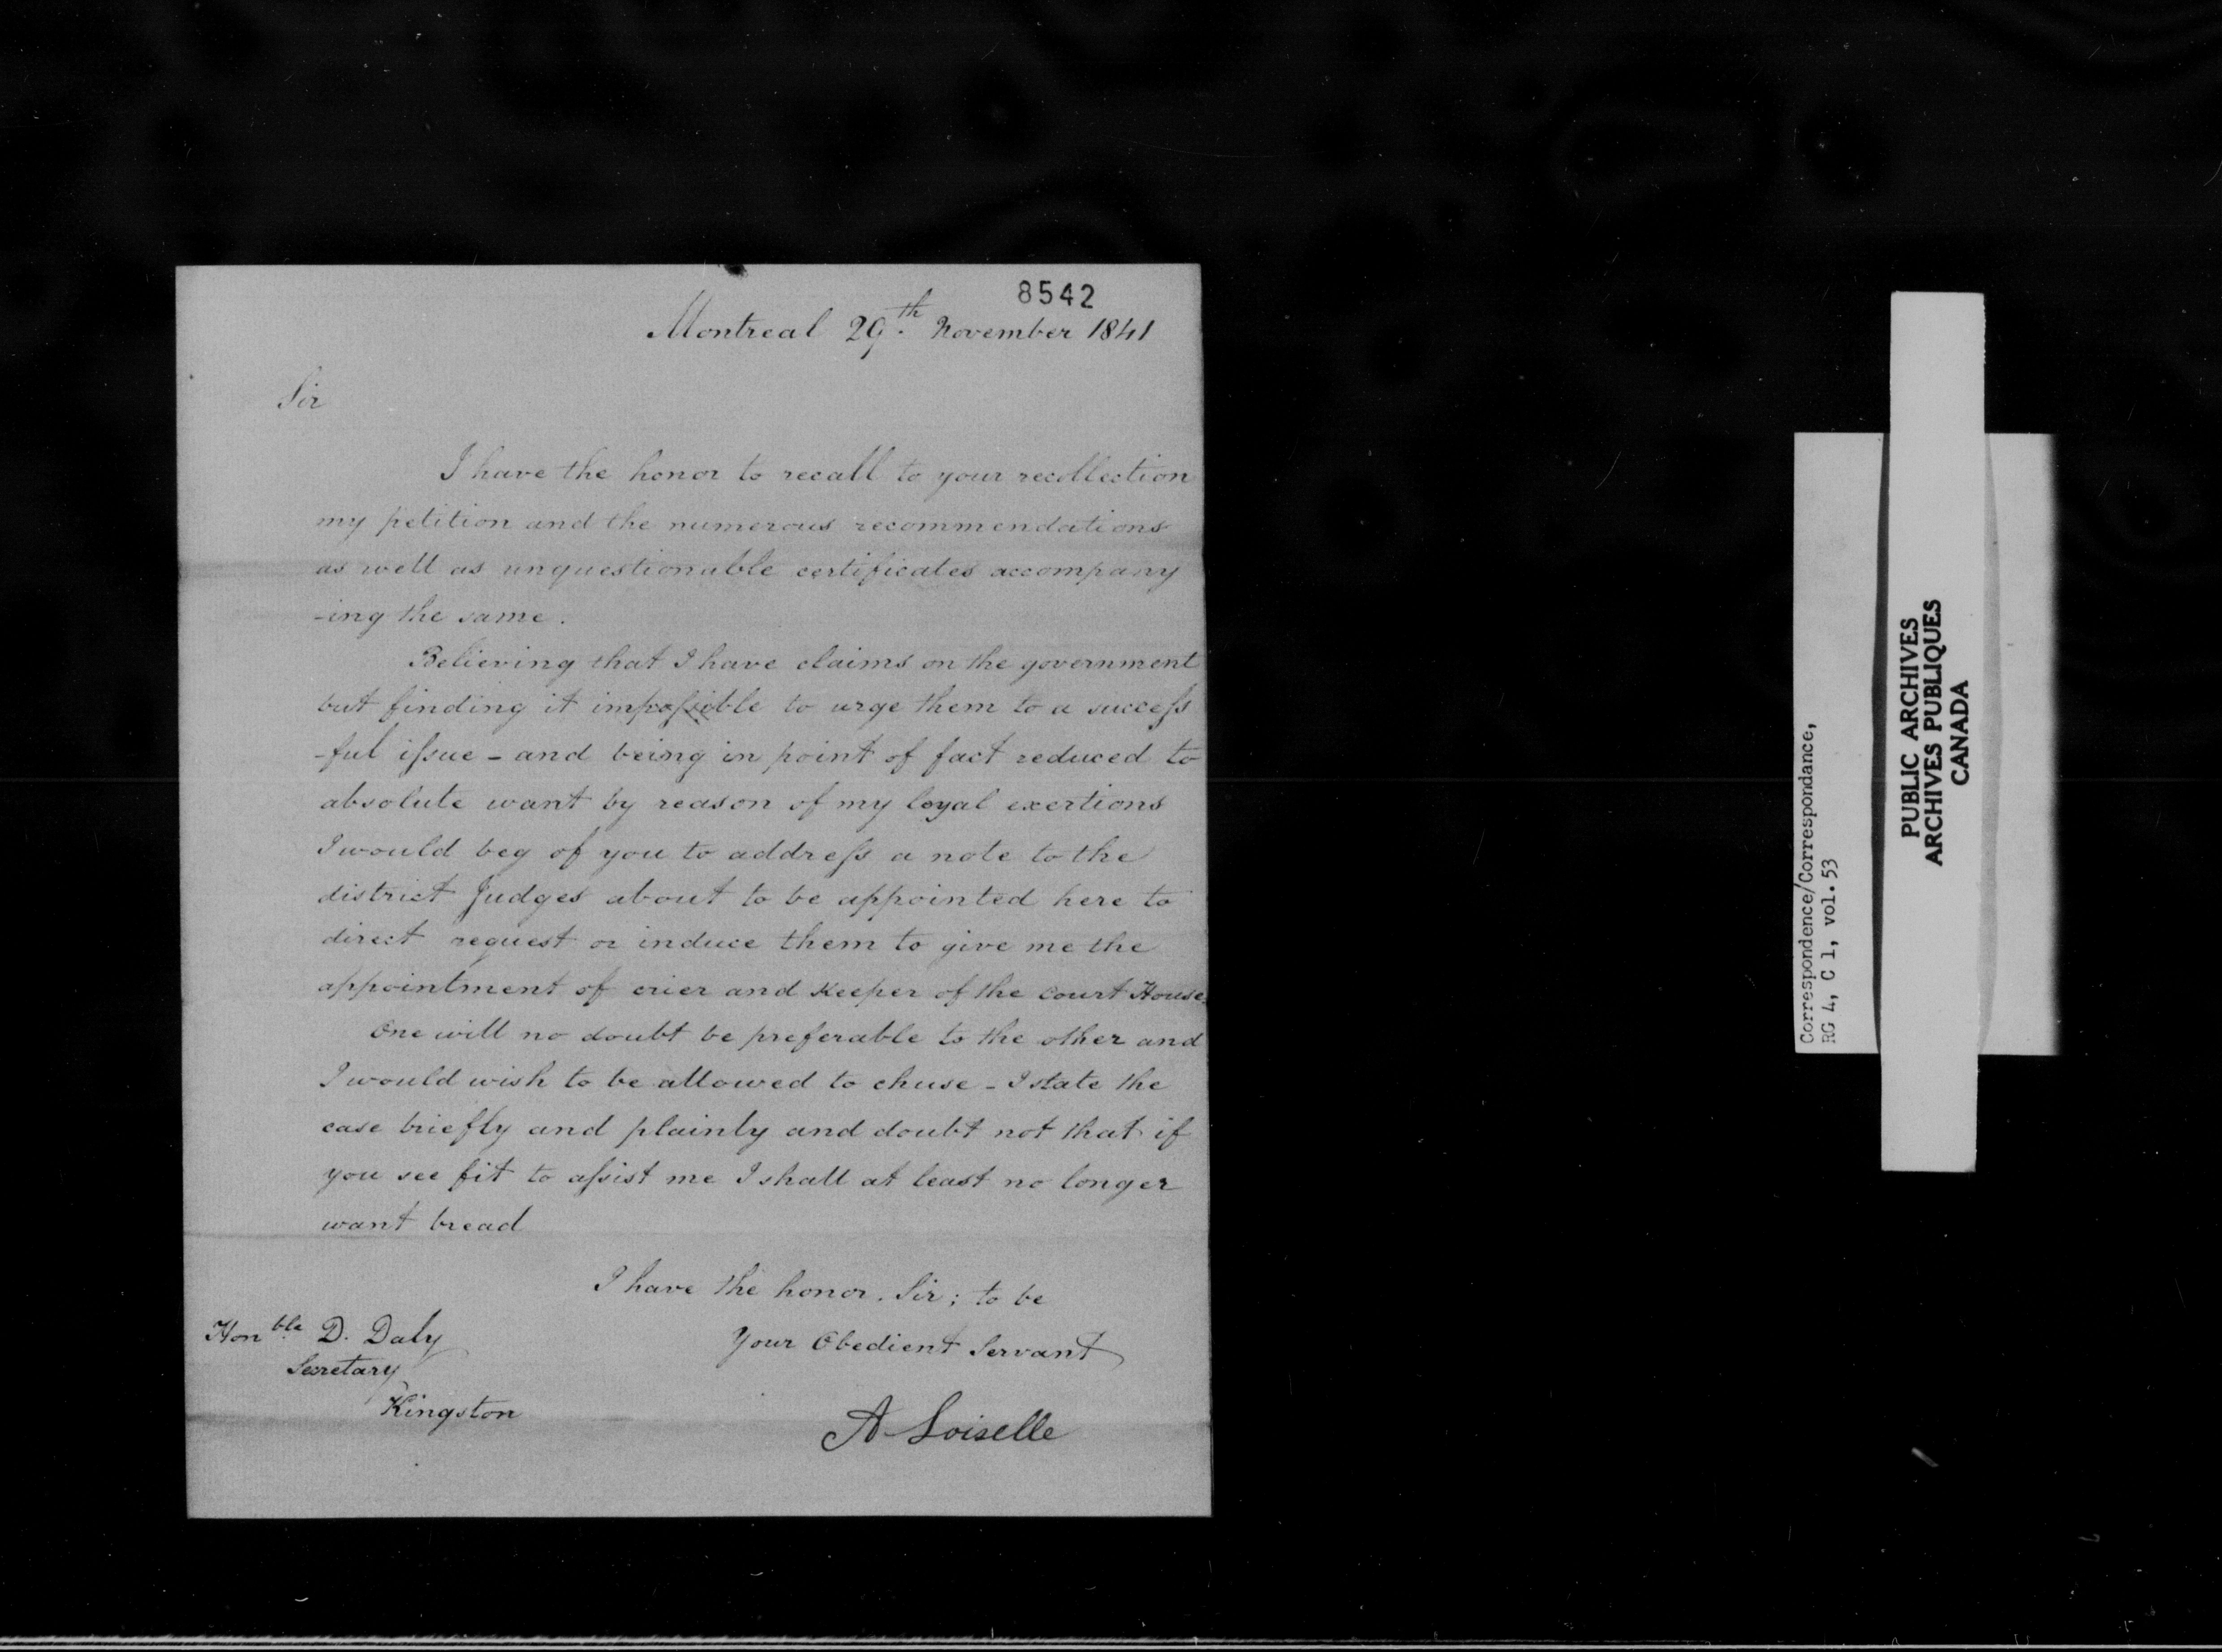 8542
Montreal 29th November 1841
Sir
I have the honor to recall to your recollection
my petition and the numerous recommendations
as well as unquestionable certificates accompany
-ing the same.
Believing that I have claims on the government
but finding it impossible to urge them to a success
-ful issue - and being in point of fact reduced to
absolute want by reason of my loyal exertions
I would beg of you to address a note to the
district Judges about to be appointed here to
direct request or induce them to give me the
appointment of crier and Keeper of the Court House.
One will no doubt be preferable to the other and
I would wish to be allowed to chuse - I state the
case briefly and plainly and doubt not that if
you see fit to assist me I shall at least no longer
want bread
I have the honor. Sir; to be
Your Obedient Servant
A Loiselle
Honble D. Daly
Secretary
Kingston
Correspondence/Correspondance,
RG 4, C 1, vol.53
PUBLIC ARCHIVES
ARCHIVES PUBLIQUES
CANADA